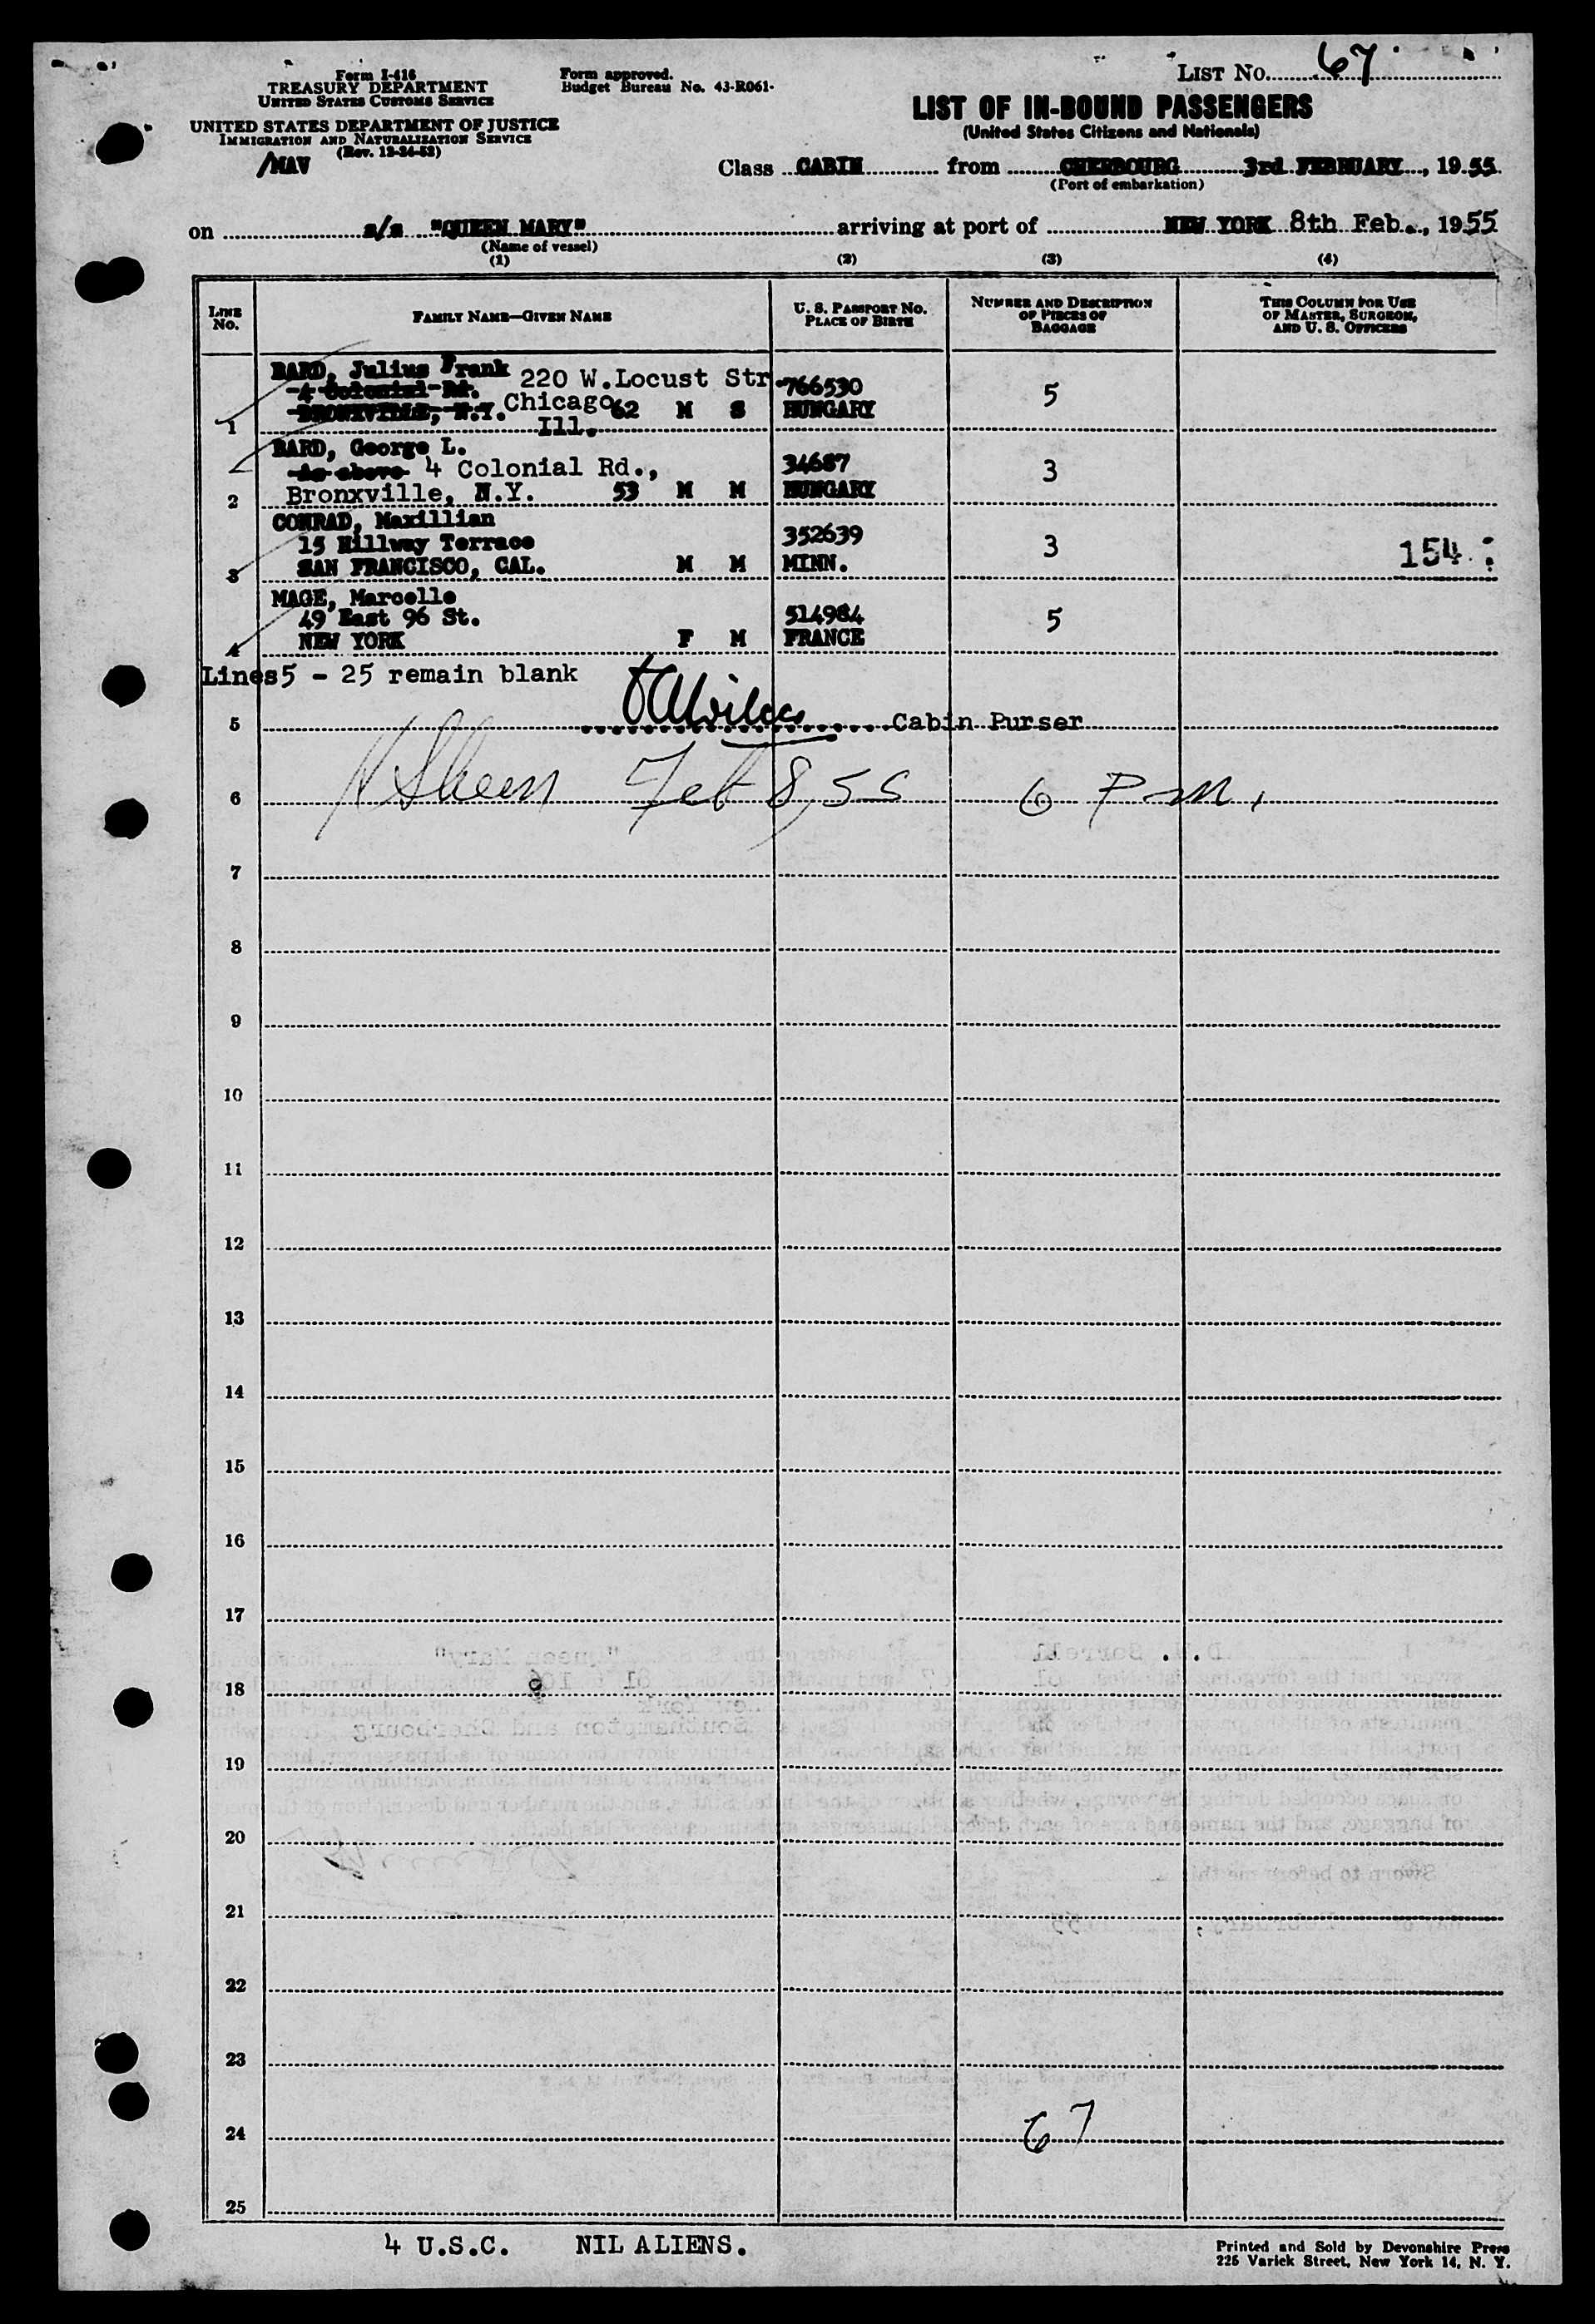 Form I-416
TREASURY DEPARTMENT
UNITED STATES CUSTOMS SERVICE
UNITED STATES DEPARTMENT OF JUSTICE
IMMIGRATION AND NATURALIZATION SERVICE
(Rev. 12-24-52)
/MAV
Form approved.
Budget Bureau No. 43-R061.
LIST NO. 67
LIST OF IN-BOUND PASSENGERS
(United States Citizens and Nationals)
Class CABIN from CHERBOURG 3rd FEBRUARY, 1955
(Port of embarkation)
on s/s "QUEEN MARY" arriving at port of NEW YORK 8th Feb., 1955
(Name of vessel)
(1) (2) (3) (4)
LINE No.
FAMILY NAME—GIVEN NAME
U. S. PASSPORT NO.
PLACE OF BIRTH
NUMBER AND DESCRIPTION
OF PIECES OF
BAGGAGE
THIS COLUMN FOR USE
OF MASTER, SURGEON,
AND U. S. OFFICERS
BARD, Julius Frank
4 Colonial Rd. 220 W.Locust Str. 766530 5
BRONXVILLE, N.Y. Chicago 62 M S HUNGARY
1 Ill.
BARD, George L.
As above 4 Colonial Rd., 34687 3
2 Bronxville, N.Y. 53 M M HUNGARY
CONRAD, Maxillian
15 Hillway Terrace 352639 3 154
3 SAN FRANCISCO, CAL. M M MINN.
MAGE, Marcelle
49 East 96 St. 514984 5
4 NEW YORK F M FRANCE
Lines 5 - 25 remain blank
5 Cabin Purser
6 Feb 8, 55 6 P.m.
7
8
9
10
11
12
13
14
15
16
17
18
19
20
21
22
23
24 67
25
4 U.S.C. NIL ALIENS.
Printed and Sold by Devonshire Press
225 Varick Street, New York 14, N. Y.